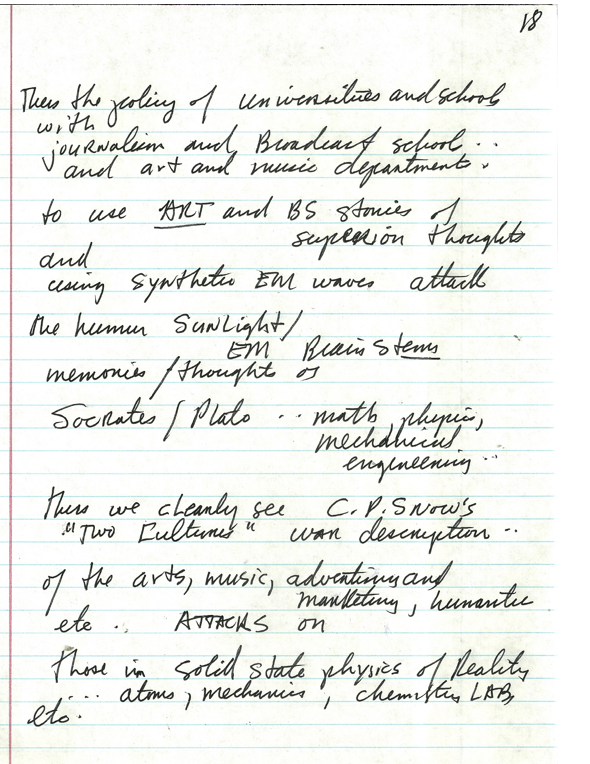 18
Thus the policy of universities and schools
with
journalism and Broadcast school ..
and art and music department.
to use ART and BS stories of
superior thoughts
and
using synthetic EM waves attack
the human Sunlight/
EM Brain Stems
memories / thoughts of
Socrates / Plato .. math, physics,
mechanical
engineering ..
thus we clearly see C.P. Snow's
"Two Cultures" war description ..
of the arts, music, advertising and
marketing, humanities
etc .. ATTACKS on
those in solid state physics of Reality
... atoms, mechanics, chemistry LAB,
etc.